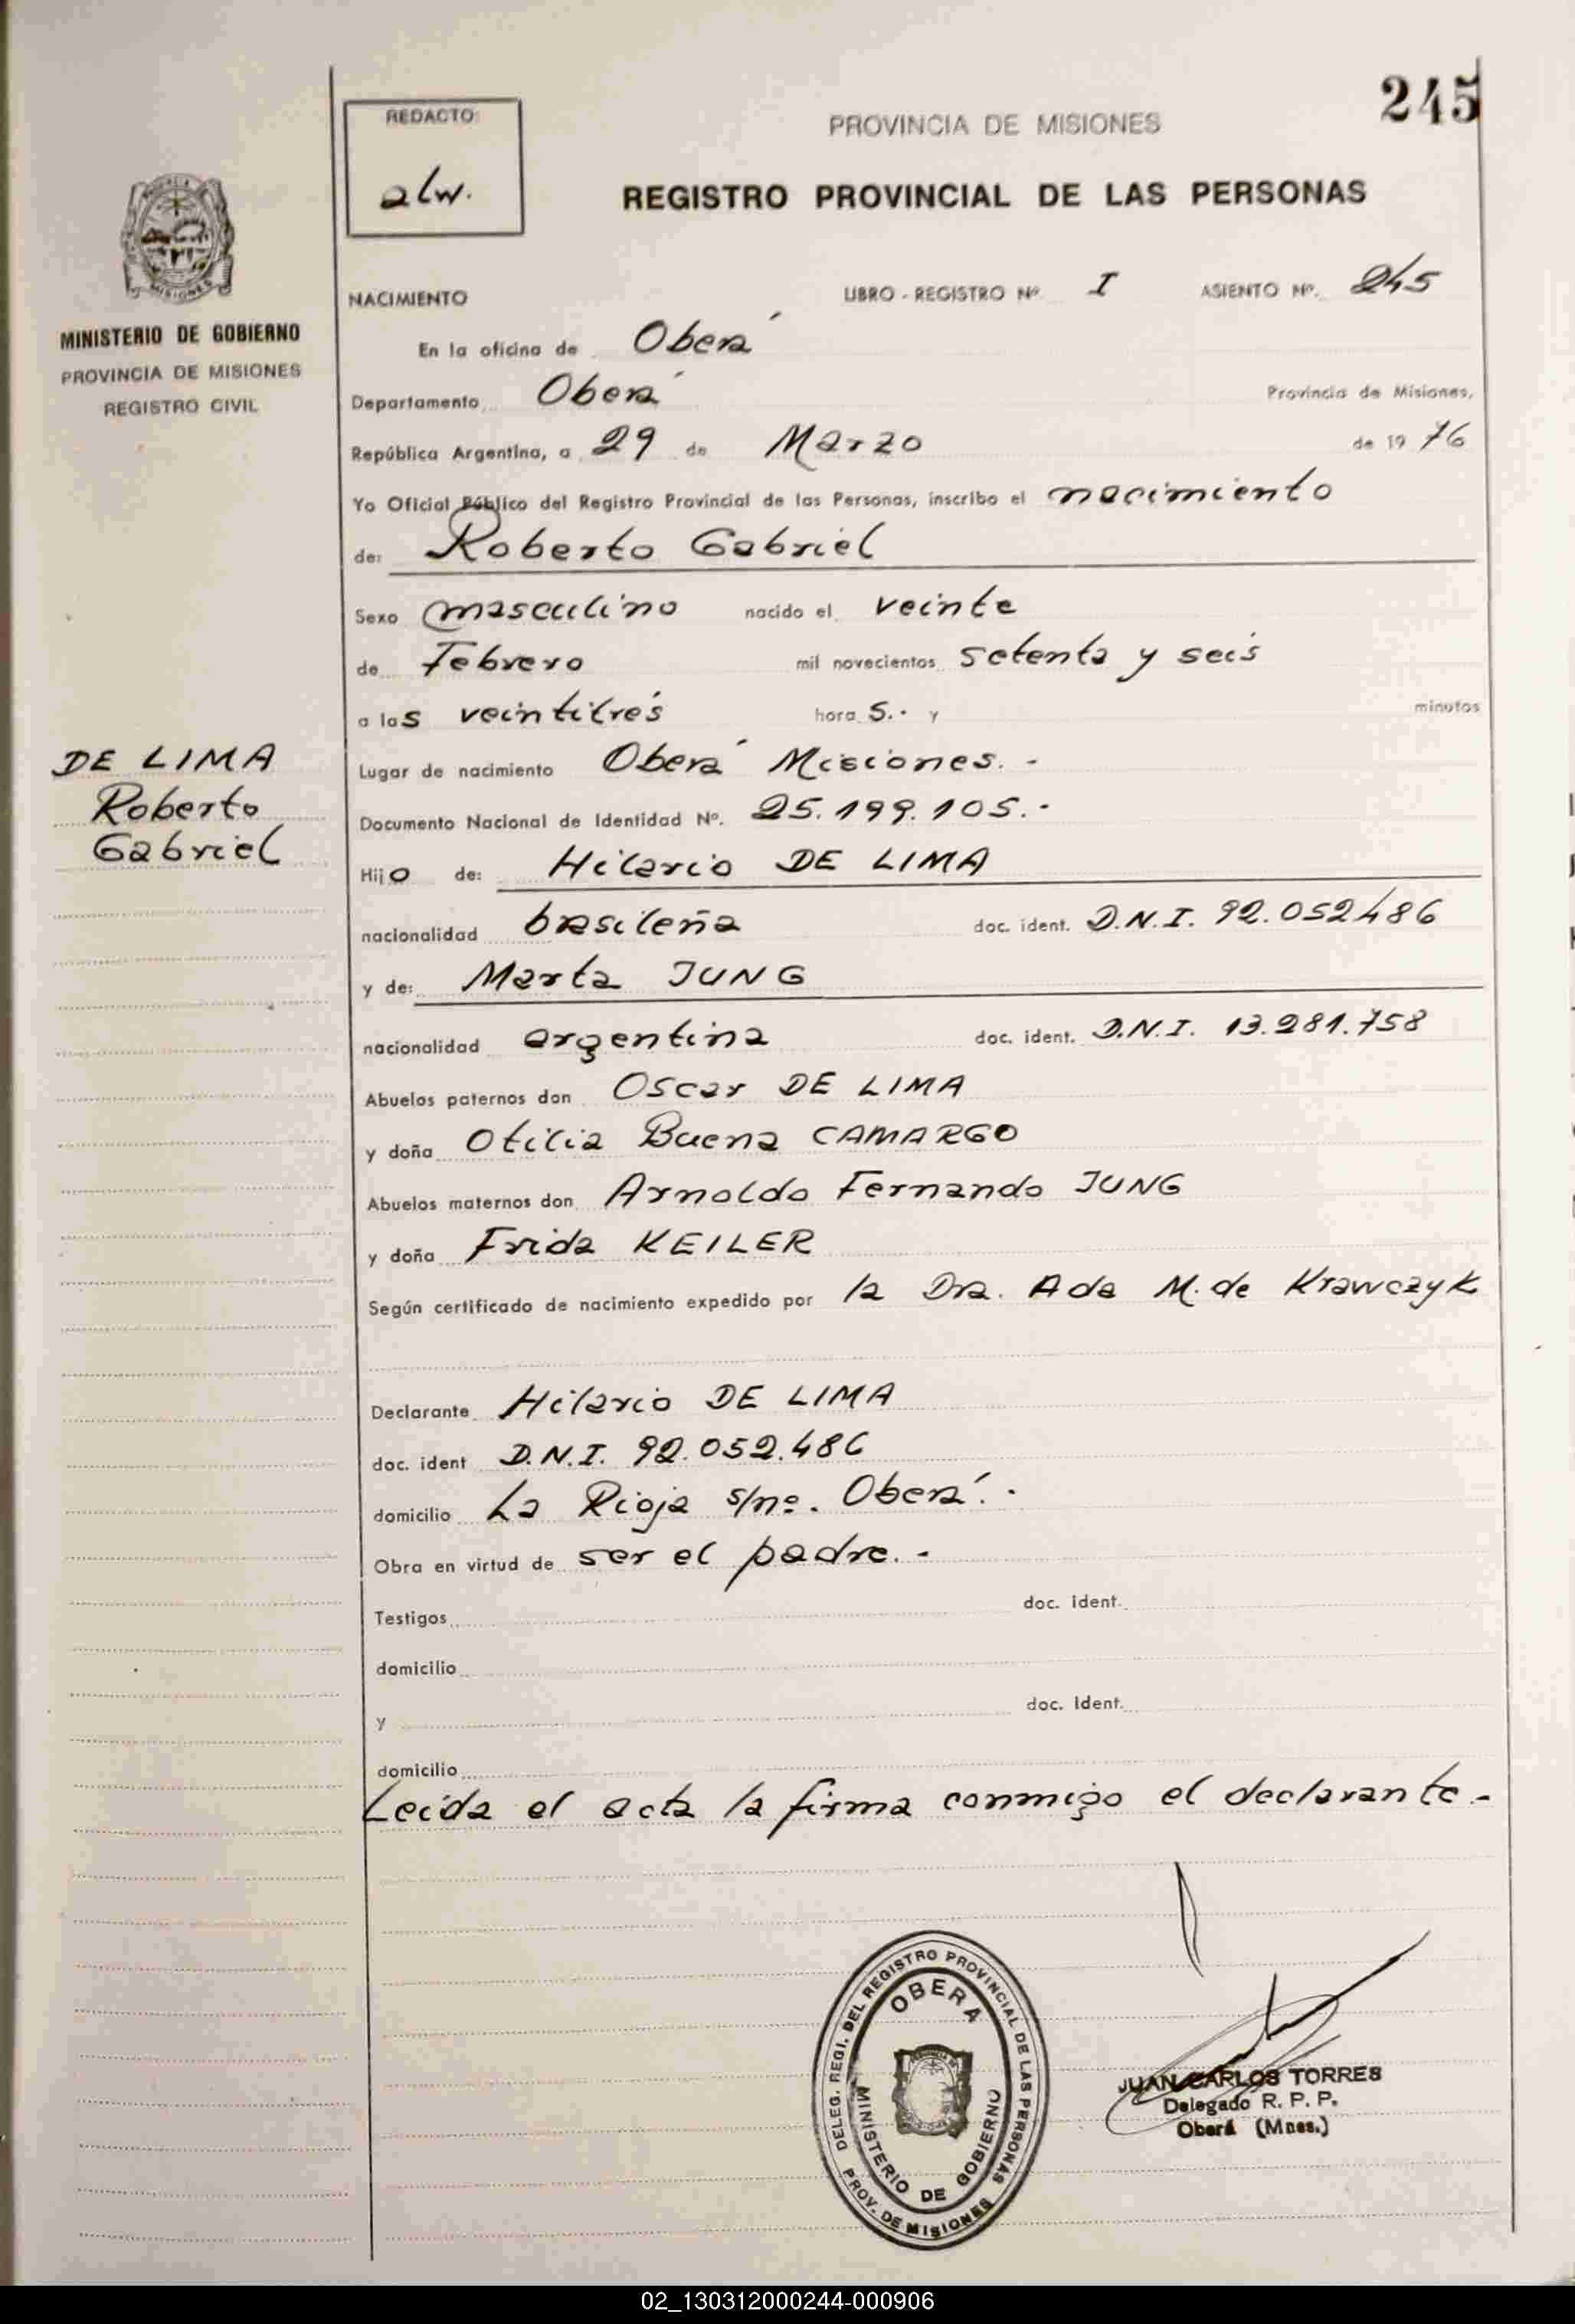 245
REDACTO:
alw.
PROVINCIA DE MISIONES
REGISTRO PROVINCIAL DE LAS PERSONAS
MISIONES
MINISTERIO DE GOBIERNO
PROVINCIA DE MISIONES
REGISTRO CIVIL
NACIMIENTO LIBRO - REGISTRO Nº I ASIENTO Nº. 245
En la oficina de Oberá
Departamento Oberá Provincia de Misiones,
República Argentina, a 29 de Marzo de 19 76
Yo Oficial Público del Registro Provincial de las Personas, inscribo el nacimiento
de: Roberto Gabriel
Sexo masculino nacido el veinte
de Febrero mil novecientos setenta y seis
a las veintitrés hora s.- y minutos
Lugar de nacimiento Oberá Misiones.-
Documento Nacional de Identidad Nº. 25.199.105.-
DE LIMA
Roberto
Gabriel
Hijo de: Hilario DE LIMA
nacionalidad brasileña doc. ident. D.N.I. 92.052486
y de: Marta JUNG
nacionalidad argentina doc. ident. D.N.I. 13.281.758
Abuelos paternos don Oscar DE LIMA
y doña Otilia Buena CAMARGO
Abuelos maternos don Arnoldo Fernando JUNG
y doña Frida KEILER
Según certificado de nacimiento expedido por la Dra. Ada M. de Krawczyk
Declarante Hilario DE LIMA
doc. ident D.N.I. 92.052.486
domicilio La Rioja s/nº. Oberá.-
Obra en virtud de ser el padre.-
Testigos doc. ident.
domicilio
y doc. Ident.
domicilio
Leída el acta la firma conmigo el declarante.-
DELEG. REGI. DEL REGISTRO PROVINCIAL DE LAS PERSONAS
PROV. DE MISIONES
OBERA
MINISTERIO DE GOBIERNO
JUAN CARLOS TORRES
Delegado R. P. P.
Oberá (Mnes.)
02_130312000244-000906